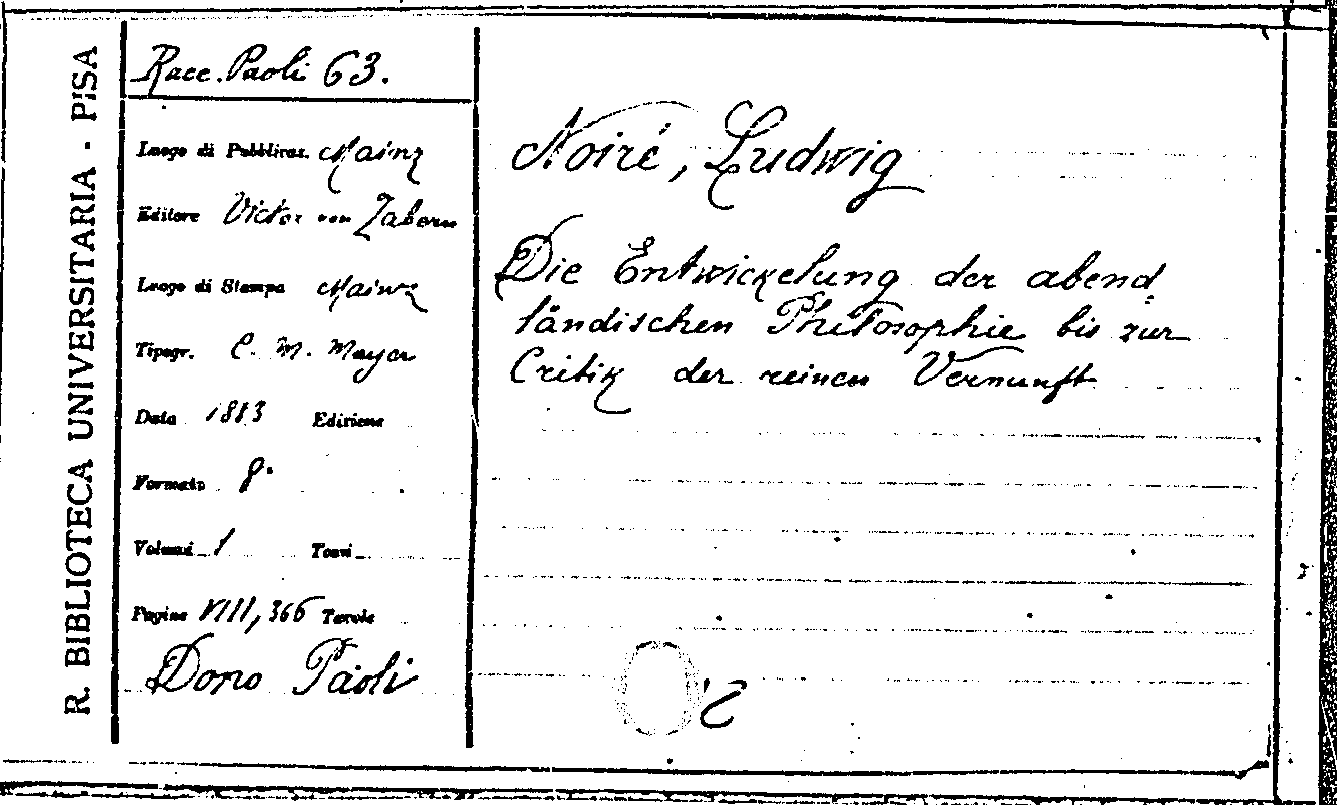 R. BIBLIOTECA UNIVERSITARIA - PISA
Racc. Paoli 63.
Luogo di Pubblicaz. Mainz
Editore Victor von Zabern
Luogo di Stampa Mainz
Tipogr. C. M. Mayer
Data 1883 Edizione
Formato 8°
Volumi 1 Tomi
Pagine VIII, 366 Tavole
Dono Paoli
Noiré, Ludwig
Die Entwickelung der abend-
ländischen Philosophie bis zur
Critik der reinen Vernunft